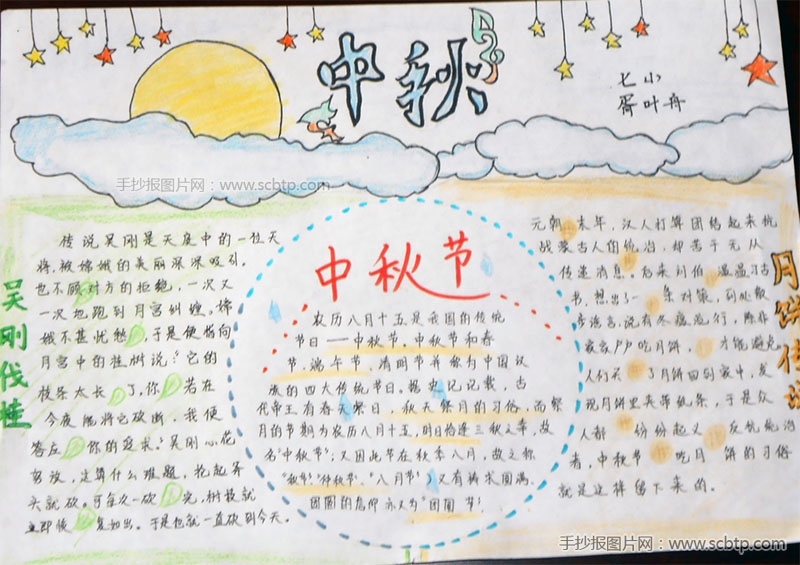 中秋
七小
胥叶舟
手抄报图片网：www.scbtp.com
吴刚伐桂
传说吴刚是天庭中的一位天
将,被嫦娥的美丽深深吸引,
也不顾对方的拒绝,一次又
一次地跑到月宫纠缠,嫦
娥不甚忧愁,于是便指向
月宫中的桂树说:“它的
枝条太长了,你若在
今夜能将它砍断,我便
答应你的要求.”吴刚心花
怒放,这算什么难题,抡起斧
头就砍.可每次一砍完,树枝就
立即恢复如出.于是他就一直砍到今天。
中秋节
农历八月十五是我国的传统
节日——中秋节,中秋节和春
节,端午节,清明节并称为中国汉
族的四大传统节日。据史记记载,古
代帝王有春天祭日,秋天祭月的习俗,而祭
月的节期为农历八月十五,时日恰逢三秋之半,故
名“中秋节”;又因此节在秋季八月,故又称
“秋节”“仲秋节”、“八月节”;又有祈求团圆、
团圆的信仰 亦又为“团圆节”!
月饼传
元朝末年,汉人打算团结起来抗
战蒙古人的统治,却苦于无从
传递消息。后来刘伯温
书,想出了一条对策,到处散
步谣言,说有冬瘟流行,除非
家家户户吃月饼,才能避免.
人们买了月饼回到家中,发
现月饼里夹带纸条,于是众
人都份份起义反抗统治
者,中秋节吃月饼的习俗
就是这样留下来的。
手抄报图片网：www.scbtp.com